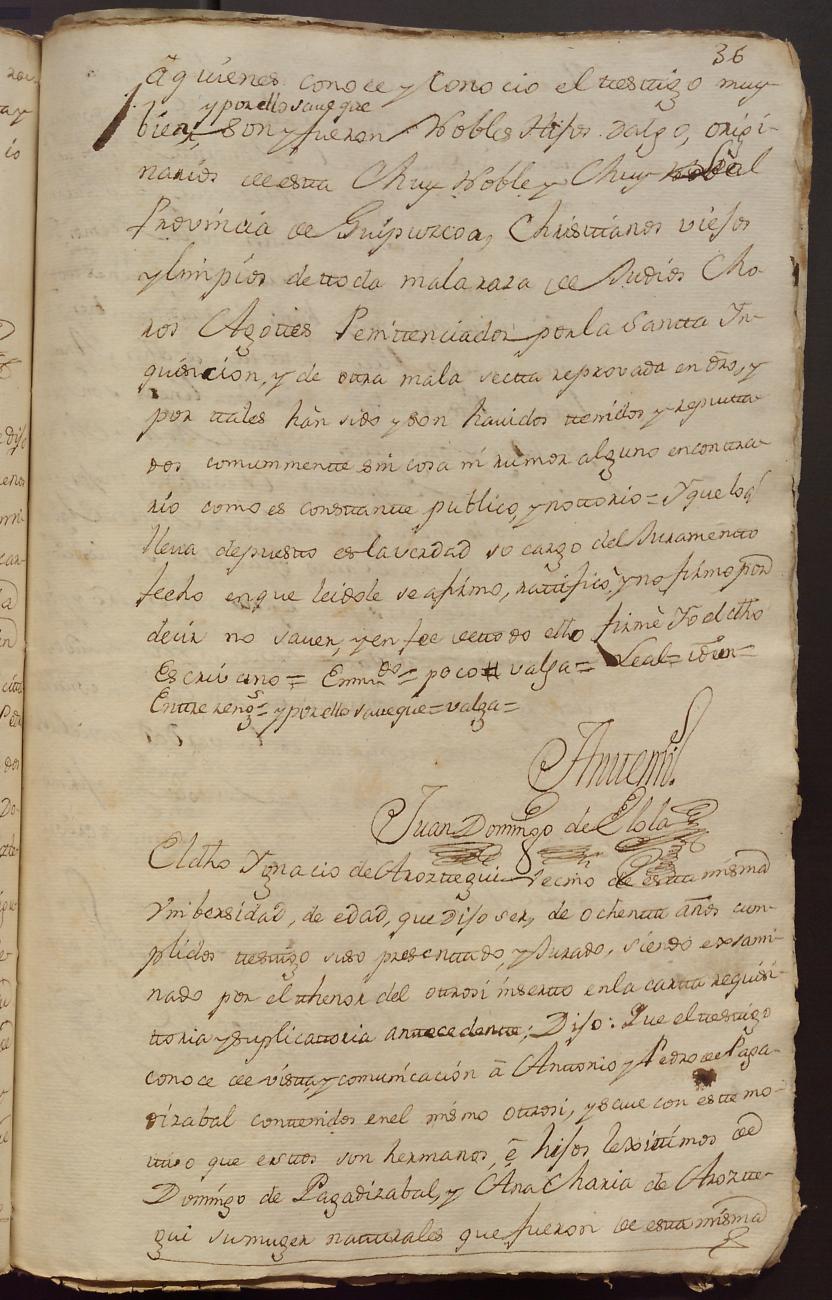 36
â quienes conoce y conocio el testtigo muy
y por ello save que
bien, son y fueron Nobles Hijos dalgo, origi-
narios de estta Muy Noble y Muy Leal
Provincia de Guipuzcoa, Christtianos viejos
y limpios de ttoda mala raza de Judios Mo-
ros Agottes Penittenciados por la Santta In-
quisicion, y de otra mala sectta reprovada en dro, y
por ttales han sido y son havidos ttenidos y reputta-
dos comunmentte sin cosa ni rumor alguno en conttra-
rio como es consttantte publico, y nottorio = Y que lo q̃
lleva depuestto es la verdad so cargo del Juramentto
fecho en que leidole se afirmo, rattificò, y no firmo por
decir no saver, y en fee de ttodo ello firmè Yo el dho
Escrivano = Emmdo = poco = valga = Leal = idem =
Entre rengs = y por ello save que = valga =
Antte mi
Juan Domingo de Elola
El dho Ygnacio de Arozttegui vecino de estta misma
Vnibersidad, de edad, que dijo ser, de ochentta años cum-
plidos testtigo susso presenttado, y Jurado, siendo exsami-
nado por el thenor del ottrosi insertto en la cartta requisi-
ttoria y suplicattoria anttecedentte; Dijo: Que el testtigo
conoce de vistta y comunicación â Anttonio y Pedro de Paga-
dizabal conttenidos en el mismo ottrosi, y save con estte mo-
ttivo que esttos son hermanos, è hijos lexittimos de
Domingo de Pagadizabal, y Ana Maria de Aroztte-
gui su muger natturales que fueron de estta misma